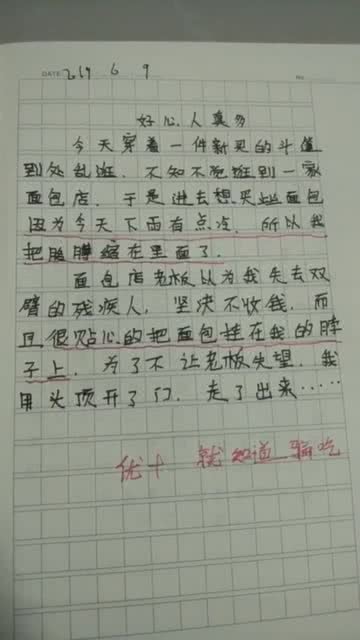 DATE 2019 6 9
No.
好心人真多
今天穿着一件新买的斗篷
到处乱逛．不知不觉逛到一家
面包店．于是进去想买些面包
因为今天下雨有点冷．所以我
把胳膊缩在里面了．
面包店老板以为我失去双
臂的残疾人，坚决不收钱．而
且很贴心的把面包挂在我的脖
子上．为了不让老板失望．我
用头顶开了门．走了出来……
优+ 就知道骗吃